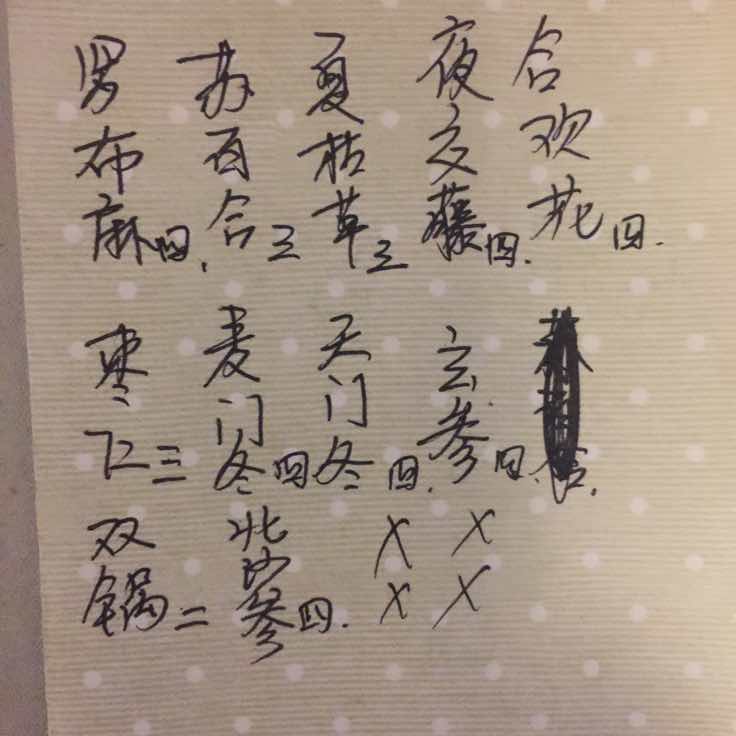 罗布麻四.
苏百合三
夏枯草三
夜交藤四.
合欢花四.
枣仁三
麦门冬四
天门冬四.
玄参四.
双锅二
北沙参四.
××
××